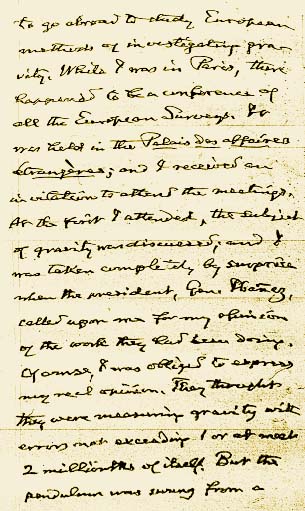 to go abroad to study European
methods of investigating gra-
vity. While I was in Paris, there
happened to be a conference of
all the European Surveys. It
was held in the Palais des affaires
étrangères; and I received an
invitation to attend the meetings.
At the first I attended, the subject
of gravity was discussed, and I
was taken completely by surprise
when the president, Gen. Ibañez,
called upon me for my opinion
of the work they had been doing.
Of course, I was obliged to express
my real opinion. They thought
they were measuring gravity with
errors not exceeding 1 or at most
2 millionths of itself. But the
pendulum was swung from a